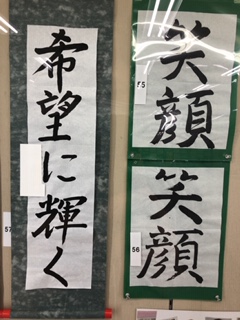 希望に輝く
57
笑顔
55
笑顔
56